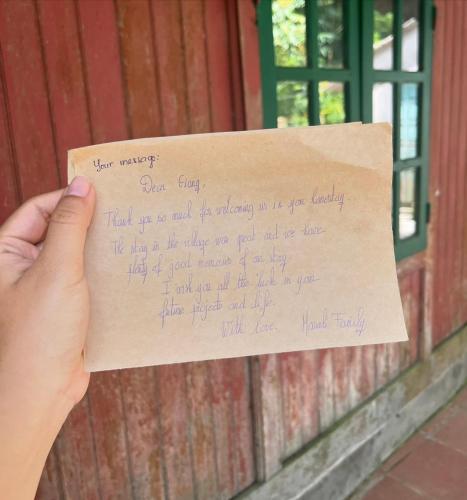 Your message:
Dear Giang,
Thank you so much for welcoming us in your homestay.
The stay in the village was great and we have
plenty of good memories of our stay
I wish you all the luck in your
future projects and life.
With love, Family